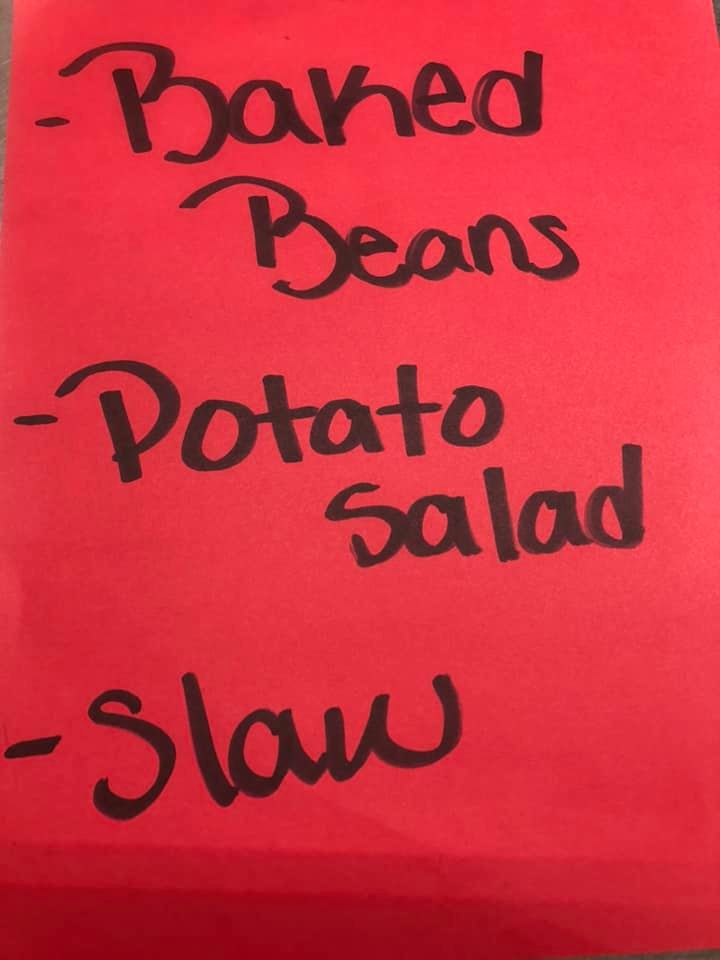 - Baked
Beans
- Potato
Salad
- Slaw